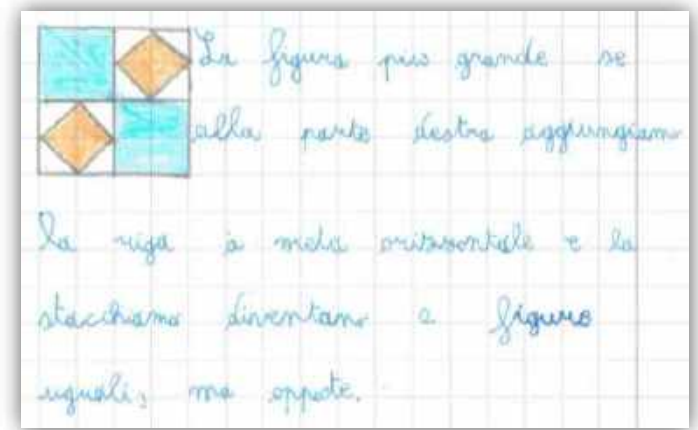 La figura più grande se
alla parte destra aggiungiamo
la riga à metà orizzontale e la
stacchiamo diventano 2 figure
uguali, ma opposte.